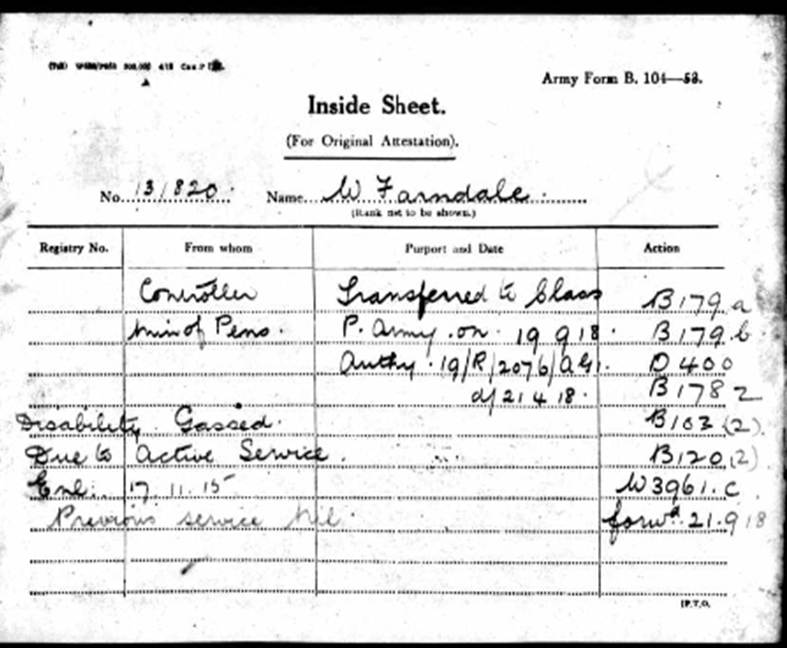 Army Form B. 104—53.
Inside Sheet.
(For Original Attestation).
No. 13/820. Name W Farndale.
(Rank not to be shown.)
Registry No. From whom Purport and Date Action
Controller Transferred to Class B179a
Min of Pens. P. Army. on. 19 9 18. B179.b
Authy. 19/R/2076/AG1. D400
d/ 21 4 18. B178 2
Disability. Gassed. B103 (2).
Due to Active Service. B120 (2)
Enl: 17. 11. 15 W3961.C
Previous service Nil. forwd. 21.9 18
[P.T.O.